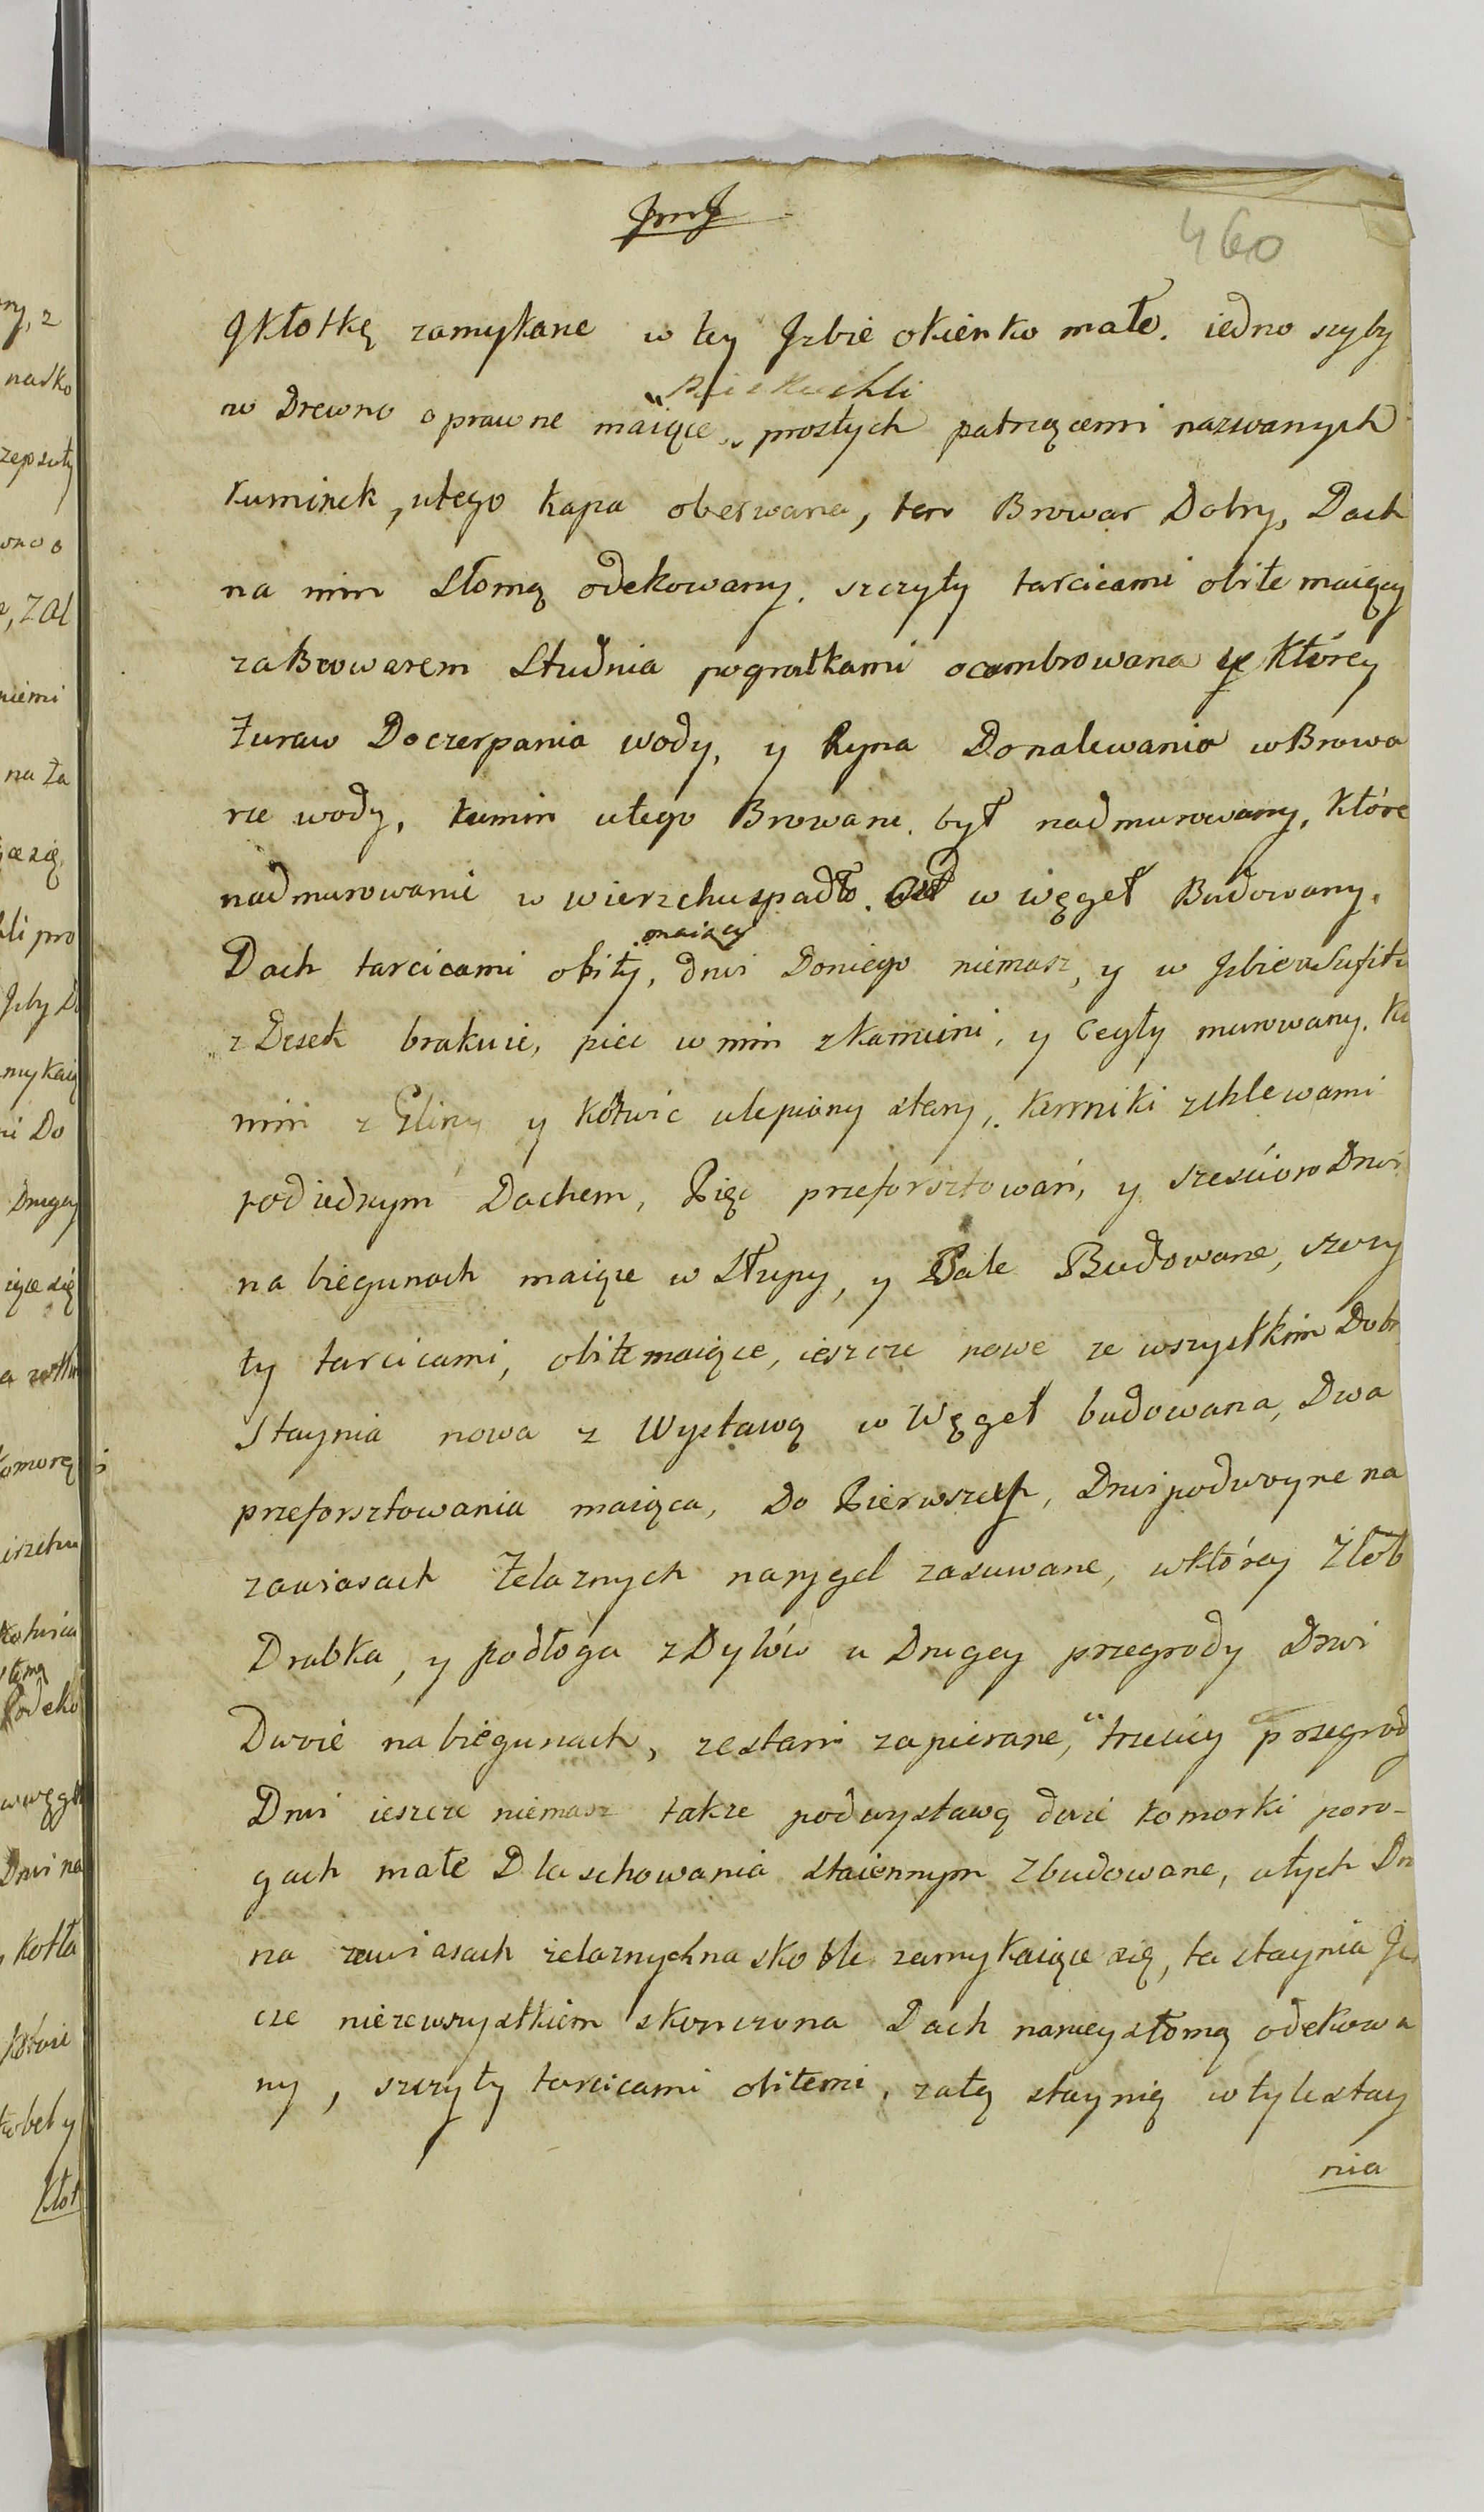 460
Jkłotkę zamykane w tey Jzbie okienko małe. iedno szyby
w Drewno oprawne maiące prostych patrzącemi nazwanych
kuminek, utego kapa oberwana, ten Browar Dobry, Dach
na nim Słomą odekowany. szczyty tarcicami obite maiący
za Browarem Studnia pogrotkami ocembrowana y Którey
Żuraw Doczerpania wody, y Ryna Donalewania wBrowa
rze wody, kumin utego Browaru. był nadmurowany, Które
nadmurowanie w wierzchu spadło. w węgeł Budowany.
maiący
Dach tarcicami obity, drwi Doniego niemasz, y w Jzbie u Sufitu
z Desek brakuie, piec w nim zkamieni, y Cegły murowany. Ku
min z Gliny y Kołwic ulepiony stary, Karmiki zchlewami
pod iednym Dachem, Pięć przeforsztowań, y sześcioro Drwi
na biegunach maiące w Słupy, y Bale Budowane, szczy
ty tarcicami, obite maiące, ieszcze nowe ze wszystkim Dobr
Staynia nowa z Wystawą w Węgeł budowana, Dwa
przeforsztowania maiąca, Do Pierwszey, Drwi podwoyne na
zawiasach Żelaznych narygel zasuwane, wktórey Żłób
Drabka, y podłoga z Dylów u Drugey przegrody Drwi
Dwoie na biegunach, zestani zapierane, u trzeciy przegrod
Drwi ieszcze niemasz także podwystawą dwie komorki poro-
gach małe Dla schowania staiennym Zbudowane, utych Drw
na zawiasach żelaznych na skoble zamykaiące się, ta staynia Jes
cze niezewszystkiem skonczona Dach naniey słomą odekowa
ny, szczyty tarcicami obitemi, zatą staynią w tyle stay
nia